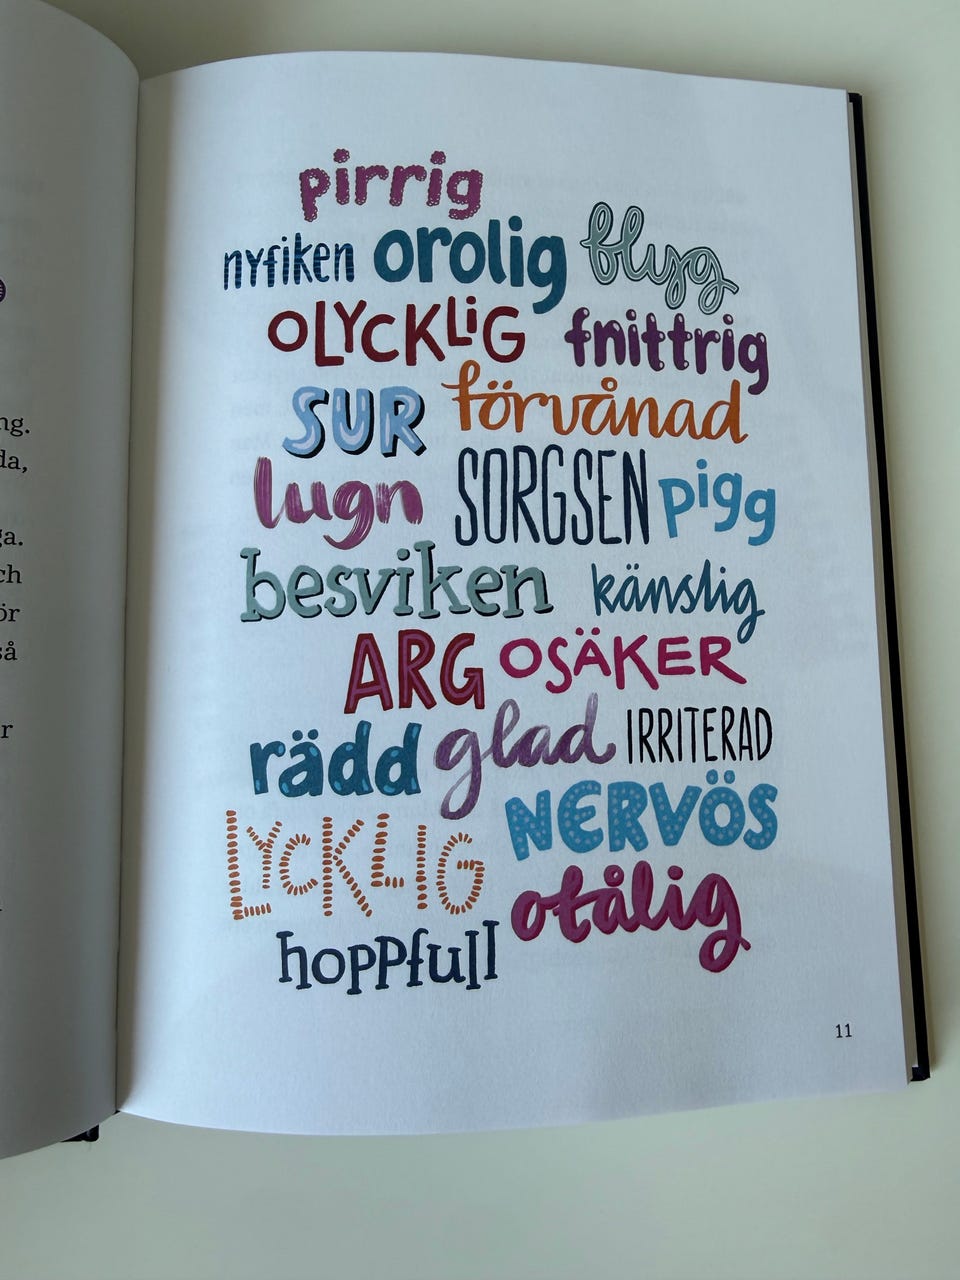 pirrig
nyfiken orolig blyg
OLYCKLiG fnittrig
SUR förvånad
lugn SORGSEN pigg
besviken känslig
ARG OSÄKER
rädd glad IRRITERAD
LYCKLIG NERVÖS
otålig
hoppfull
11